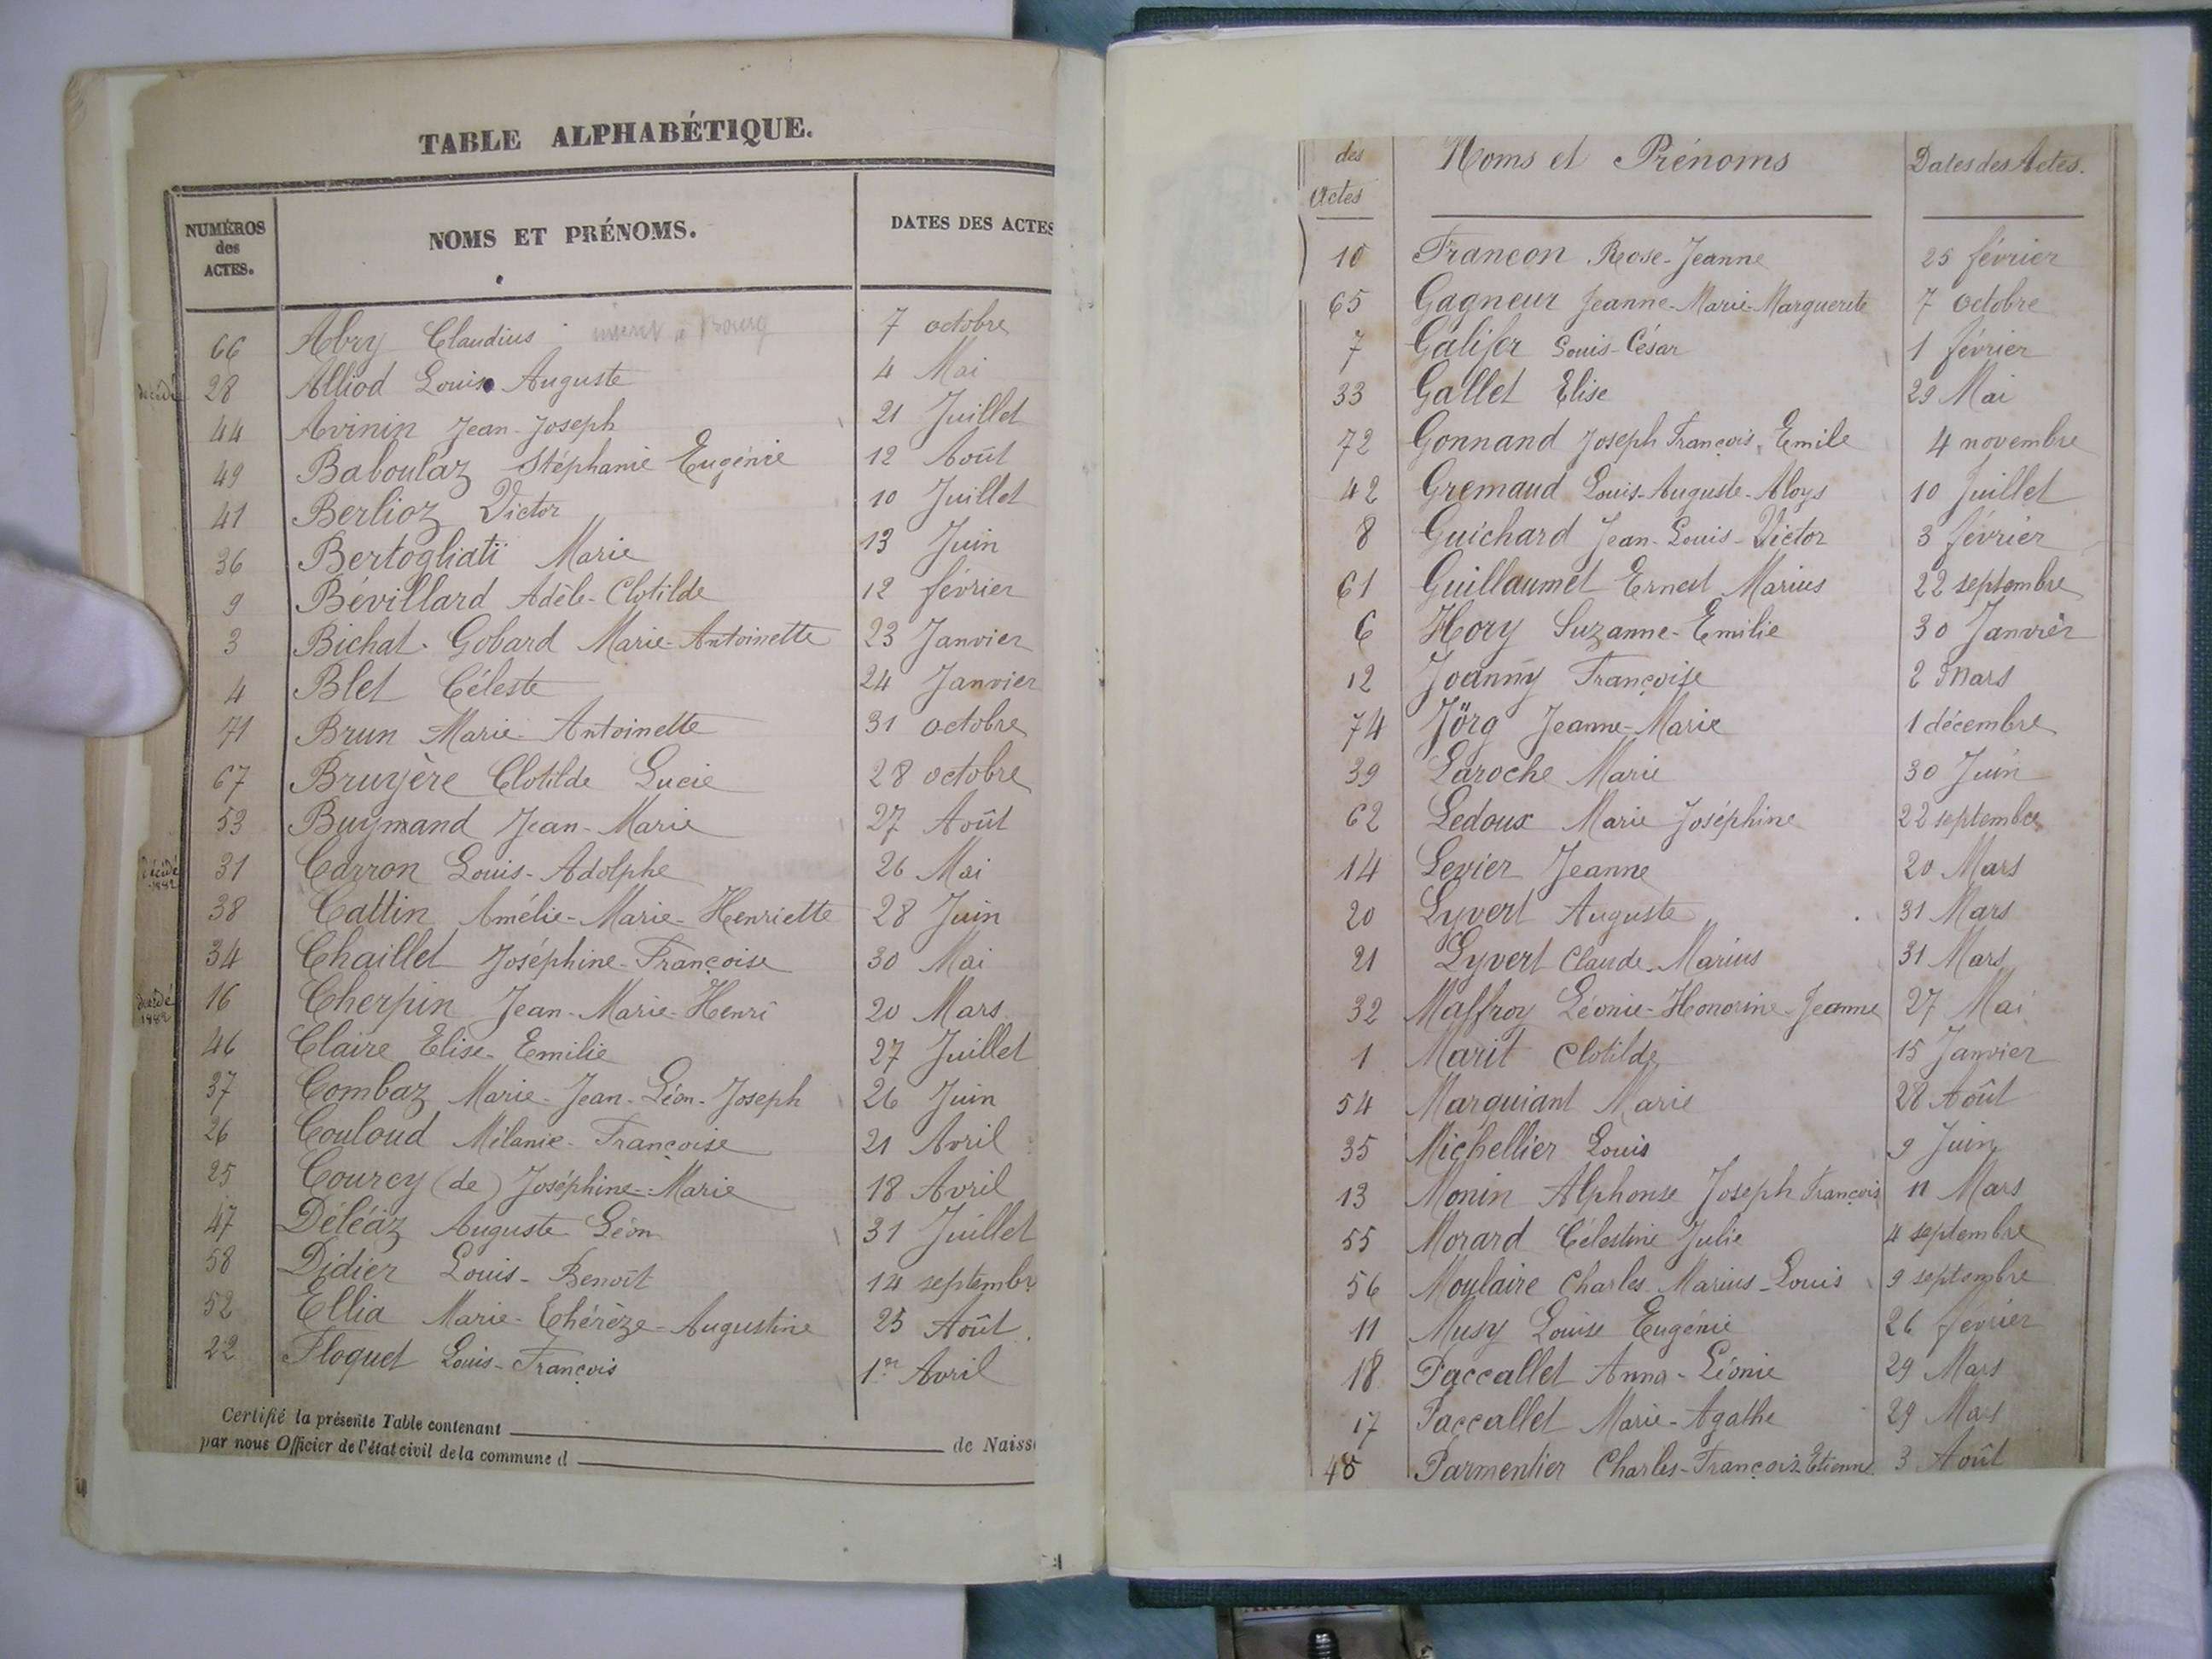 TABLE ALPHABÉTIQUE.
NUMÉROS
des
ACTES.
NOMS ET PRÉNOMS.
DATES DES ACTES
66 Abry Claudius inscrit à Bourg 7 octobre
décédé 28 Alliod Louis Auguste 4 Mai
44 Avinin Jean-Joseph 21 Juillet
49 Baboulaz Stéphanie Eugénie 12 Août
41 Berlioz Victor 10 Juillet
36 Bertogliati Marie 13 Juin
9 Bévillard Adèle-Clotilde 12 février
3 Bichat-Gobard Marie-Antoinette 23 Janvier
4 Blet Céleste 24 Janvier
71 Brun Marie-Antoinette 31 octobre
67 Bruyère Clotilde Lucie 28 octobre
53 Buymand Jean-Marie 27 Août
décédé 31 Carron Louis-Adolphe 26 Mai
38 Cattin Amélie-Marie-Henriette 28 Juin
34 Chaillet Joséphine-Françoise 30 Mai
décédé 16 Cherpin Jean-Marie-Henri 20 Mars
46 Claire Elise-Emilie 27 Juillet
37 Combaz Marie-Jean-Léon-Joseph 26 Juin
26 Couloud Mélanie-Françoise 21 Avril
25 Courcy (de) Joséphine-Marie 18 Avril
47 Déléaz Auguste Léon 31 Juillet
58 Didier Louis-Benoît 14 septembr
52 Ellia Marie-Thérèze-Augustine 25 Août
22 Floquet Louis-François 1er Avril
Certifié la présente Table contenant
de Naiss
par nous Officier de l'état civil de la commune d
des
Actes
Noms et Prénoms
Dates des Actes.
10 Francon Rose-Jeanne 25 février
65 Gagneur Jeanne-Marie-Marguerite 7 octobre
7 Galifer Louis-César 1 février
33 Gallet Elise 29 Mai
72 Gonnand Joseph François Emile 4 novembre
42 Gremaud Louis-Auguste-Aloys 10 Juillet
8 Guichard Jean-Louis-Victor 3 février
61 Guillaumet Ernest Marius 22 septembre
6 Hory Suzanne-Emilie 30 Janvier
12 Joanny Françoise 2 Mars
74 Jörg Jeanne-Marie 1 décembre
39 Laroche Marie 30 Juin
62 Ledoux Marie Joséphine 22 septembre
14 Levier Jeanne 20 Mars
20 Lyvert Auguste 31 Mars
21 Lyvert Claude-Marius 31 Mars
32 Maffroy Léonie-Honorine-Jeanne 27 Mai
1 Marit Clotilde 15 Janvier
54 Marquiant Marie 28 Août
35 Michellier Louis 9 Juin
13 Monin Alphonse Joseph François 11 Mars
55 Morard Célestine Julie 4 septembre
56 Moulaire Charles Marius-Louis 9 septembre
11 Musy Louise Eugénie 26 février
18 Paccallet Anna-Léonie 29 Mars
17 Paccallet Marie-Agathe 29 Mars
48 Parmentier Charles-François-Etienne 3 Août